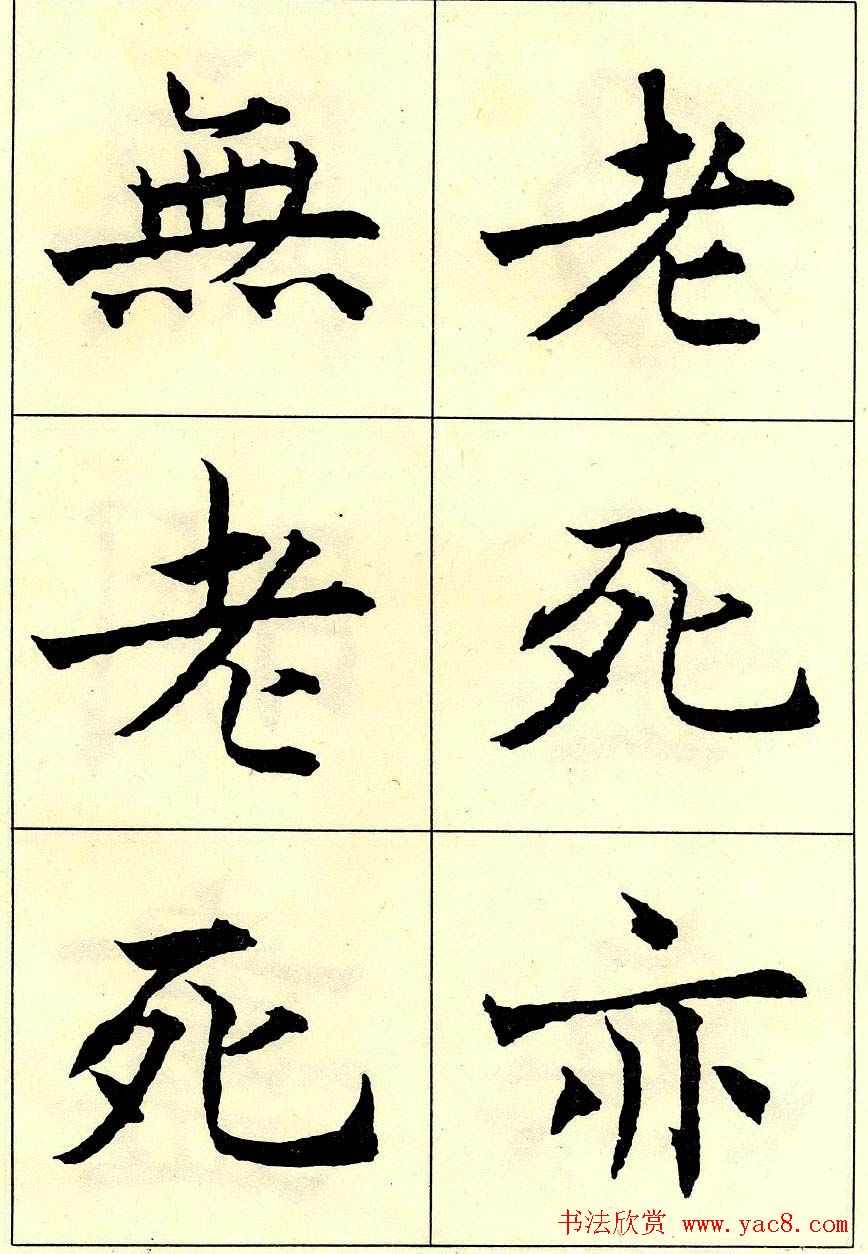 老死亦
無老死
书法欣赏 www.yac8.com